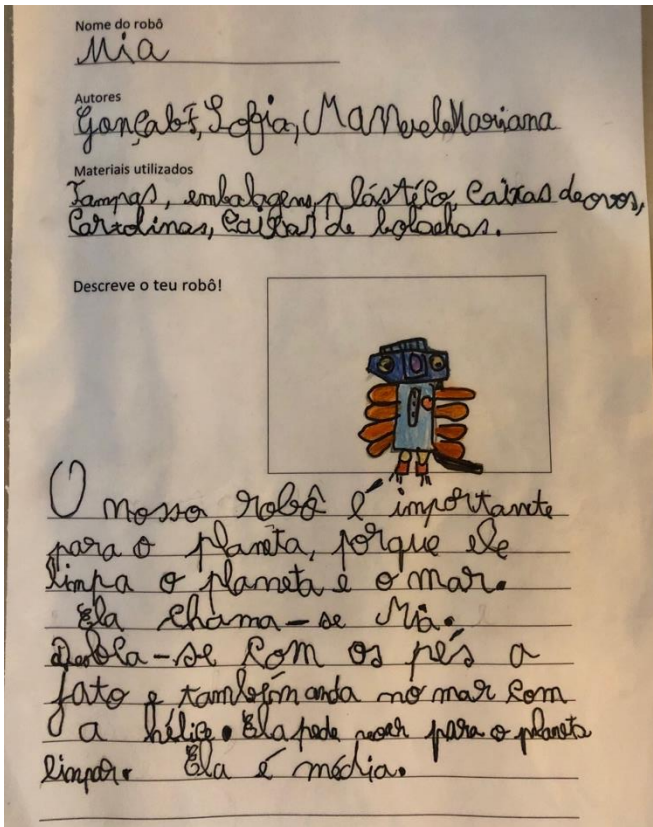 Nome do robô
Mia
Autores
Sofia, Manuel Mariana
Materiais utilizados
Tampas, embalagens, plástico, Caixas de ovos,
Cartolinas, Caixas de bolachas.
Descreve o teu robô!
O nosso robô é importante
para o planeta, porque ele
limpa o planeta e o mar.
Ela chama-se Mia.
com os pés a
jato e também anda no mar com
a hélice. Ela pode voar para o planeta
limpar. Ela é média.